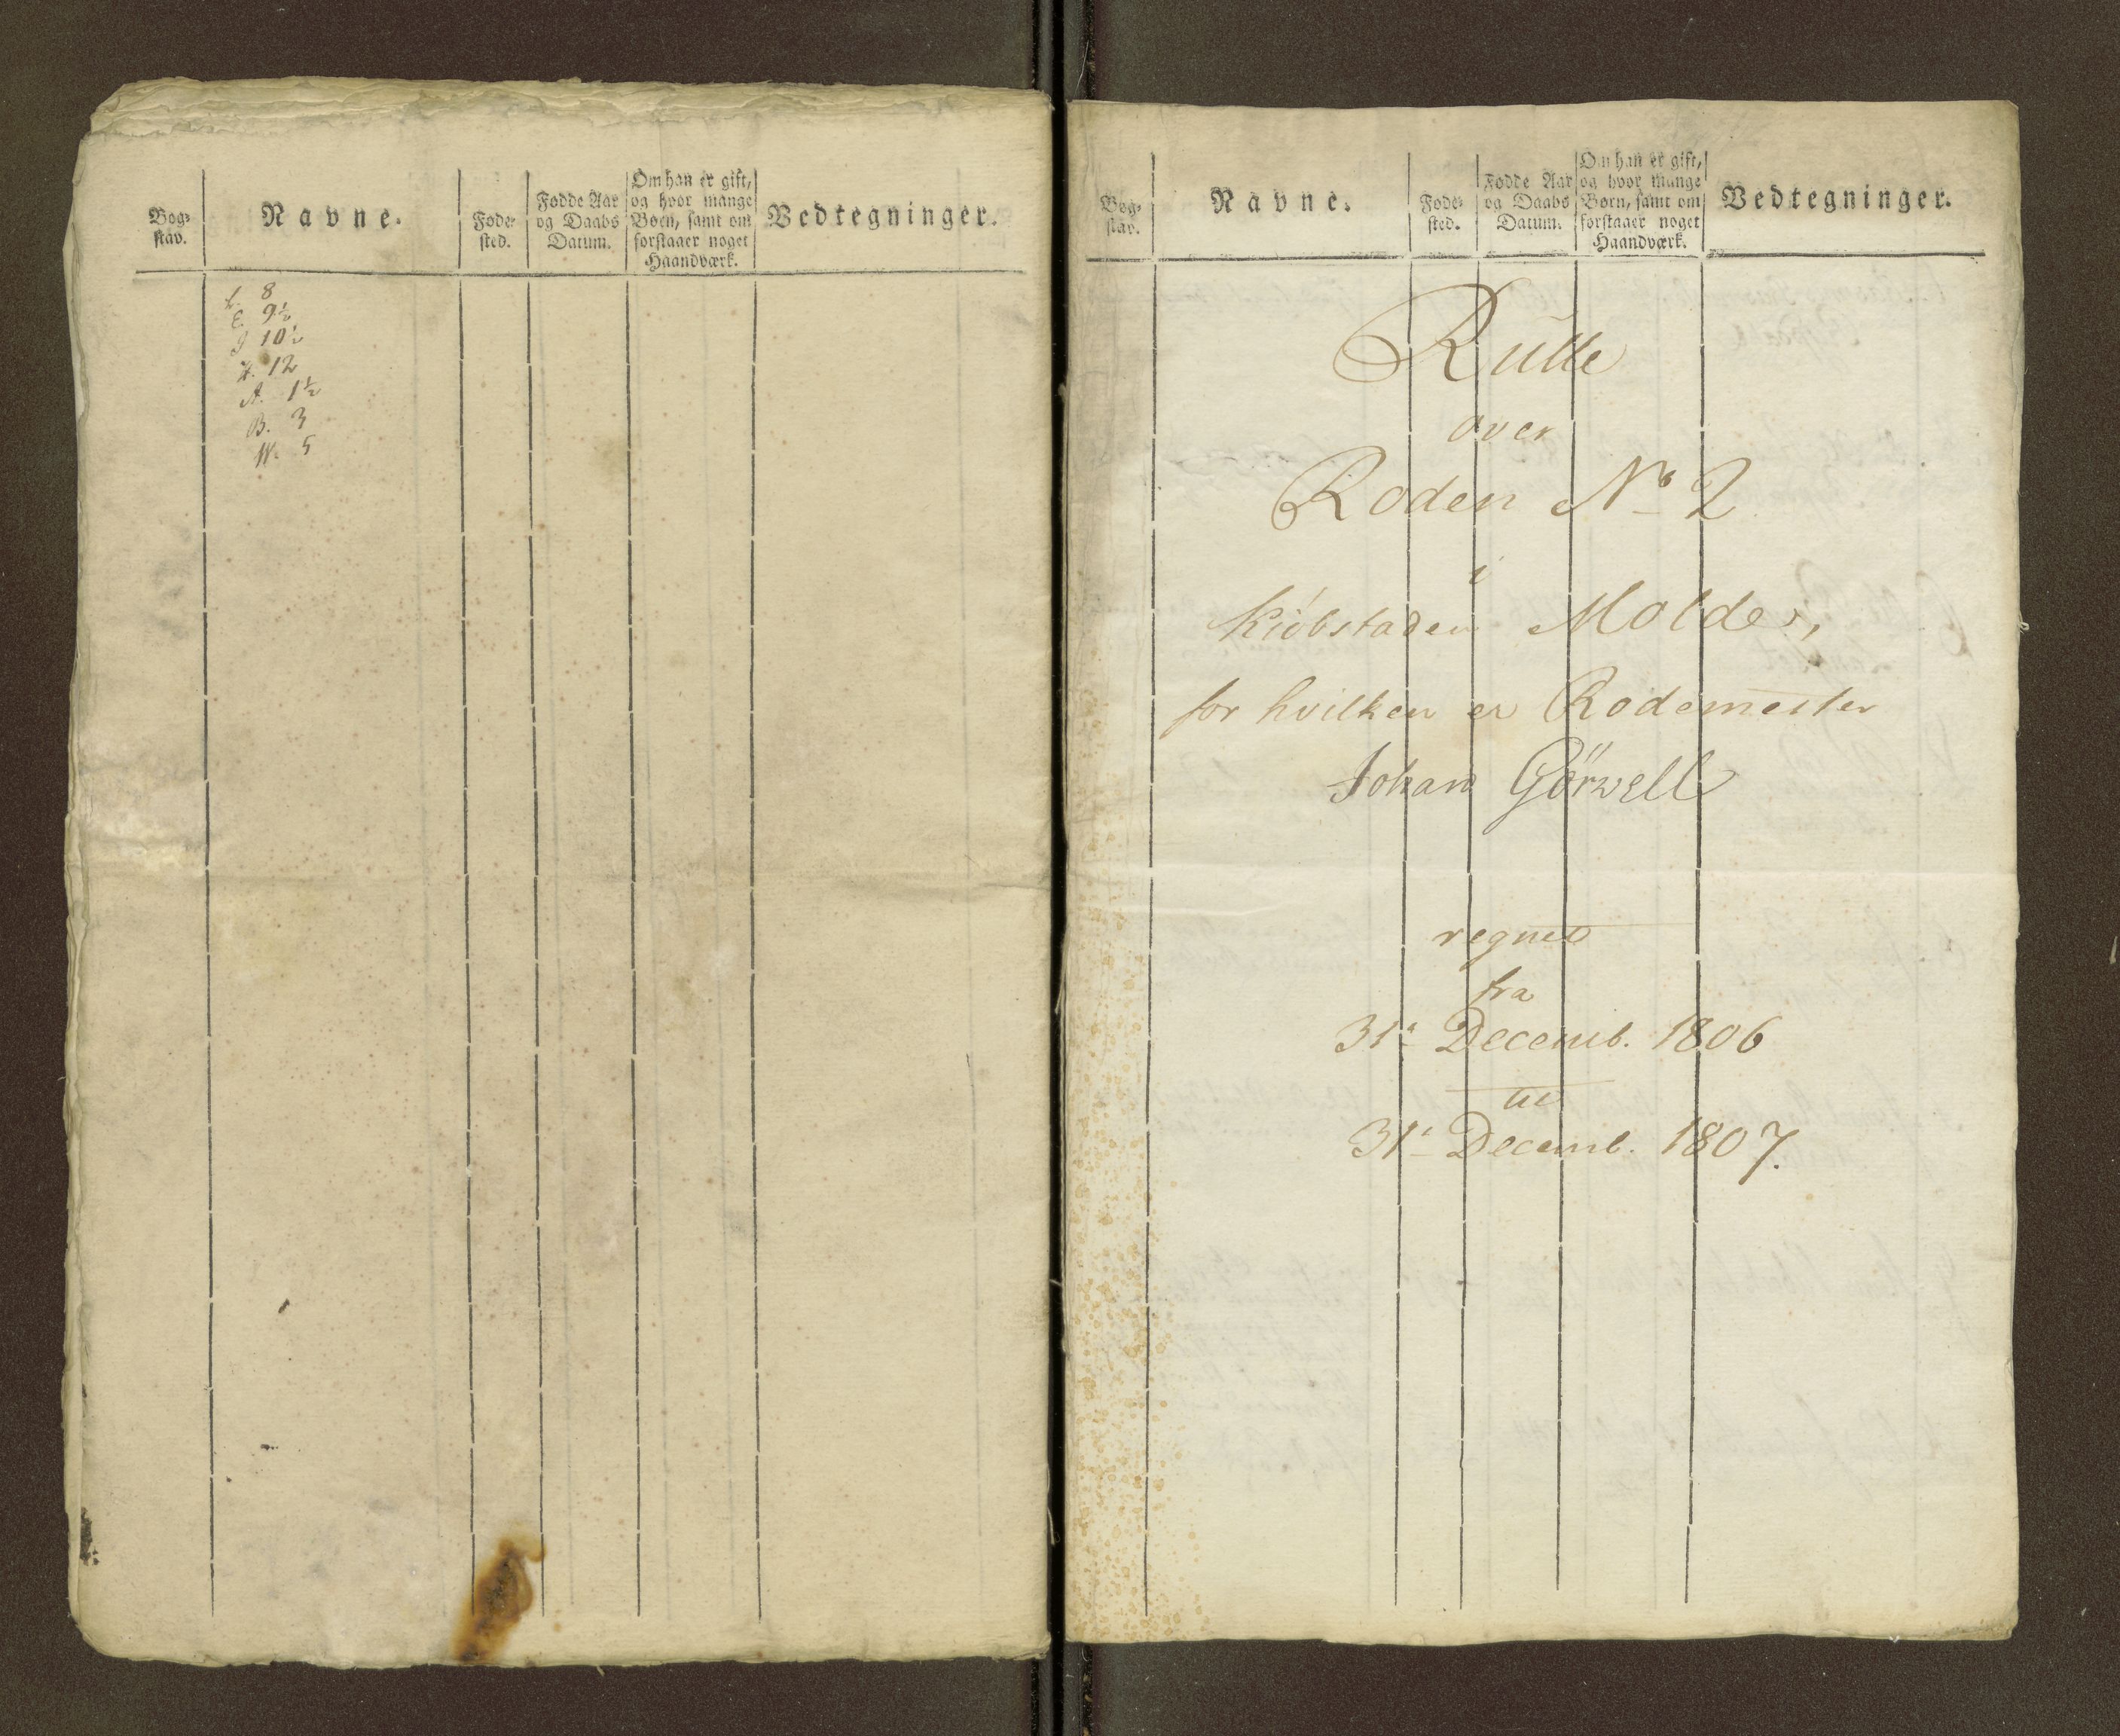 Bog-
stav.
Navne.
Føde-
sted.
Fødde Aar
og Daabs
Datum.
Om han er gift,
og hvor mange
Børn, samt om
forstaaer noget
Haandværk.
Vedtegninger.
L. 8
E. 9½
J 10½
12
A. 1½
B. 3
W. 5
Bog-
stav.
Navne.
Føde-
sted.
Fødde Aar
og Daabs
Datum.
Om han er gift,
og hvor mange
Børn, samt om
forstaaer noget
Haandværk.
Vedtegninger.
Rulle
over
Roden No 2
i
Kiöbstaden Molde,
for hvilken er Rodemester
Johan Görwell
regnet
fra
31te Decemb. 1806
til
31te Decemb. 1807.